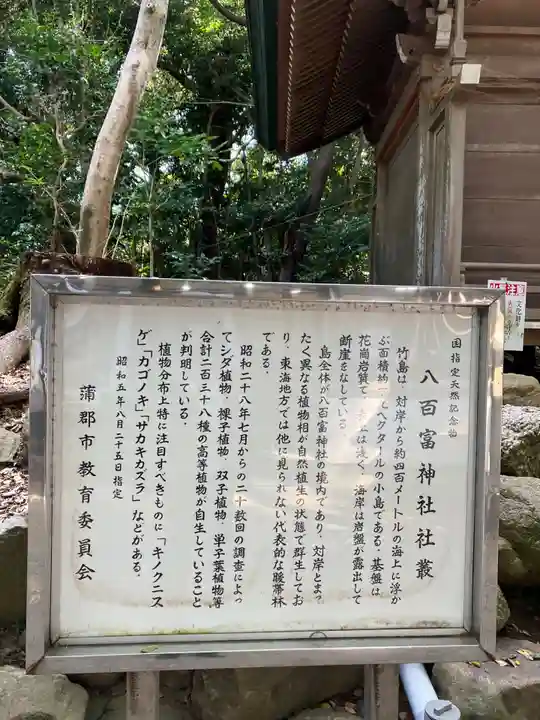 国指定天然記念物
八百富神社社叢
竹島は、対岸から約四百メートルの海上に浮か
ぶ面積約 ヘクタールの小島である。基盤は
花崗岩質で、 は浅く、海岸は岩盤が露出して
断崖をなしている。
島全体が八百富神社の境内であり、対岸とまっ
たく異なる植物相が自然植生の状態で群生してお
り、東海地方では他に見られない代表的な暖帯林
である。
昭和二十八年七月からの二十数回の調査によっ
てシダ植物、裸子植物、双子葉植物、単子葉植物等
合計二百三十八種の高等植物が自生していること
が判明している。
植物分布上特に注目すべきものに「キノクニス
ゲ」「カゴノキ」「サカキカズラ」などがある。
昭和五年八月二十五日指定
蒲郡市教育委員会
注意
文化財